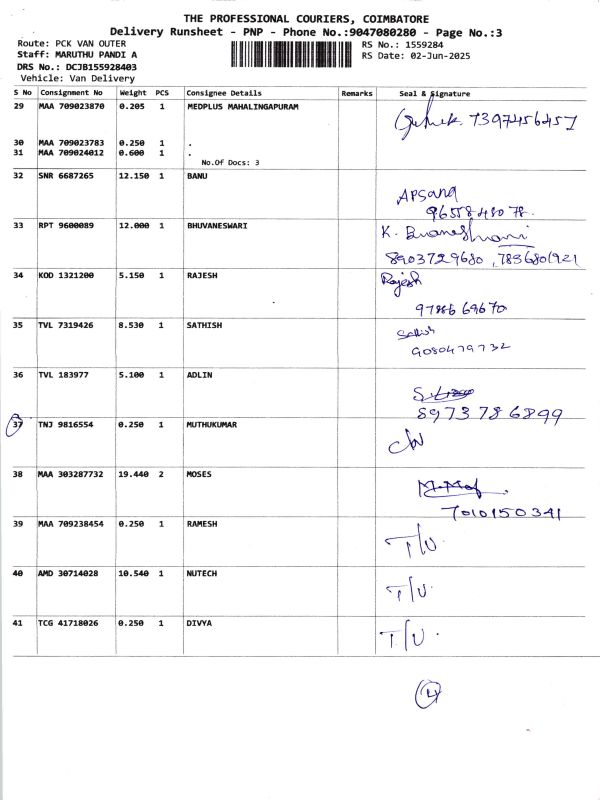 THE PROFESSIONAL COURIERS, COIMBATORE
Delivery Runsheet - PNP - Phone No.:9047080280 - Page No.:3
Route: PCK VAN OUTER RS No.: 1559284
Staff: MARUTHU PANDI A RS Date: 02-Jun-2025
DRS No.: DCJB155928403
Vehicle: Van Delivery
S No Consignment No Weight PCS Consignee Details Remarks Seal & Signature
29 MAA 709023870 0.205 1 MEDPLUS MAHALINGAPURAM 7397456457
30 MAA 709023783 0.250 1 .
31 MAA 709024012 0.600 1 .
No.Of Docs: 3
32 SNR 6687265 12.150 1 BANU
33 RPT 9600089 12.000 1 BHUVANESWARI K.
8903729680, 7836801921
34 KOD 1321200 5.150 1 RAJESH Rajesh
9786669670
35 TVL 7319426 8.530 1 SATHISH Sathish
9080479732
36 TVL 183977 5.100 1 ADLIN
8973786899
37 TNJ 9816554 0.250 1 MUTHUKUMAR
38 MAA 303287732 19.440 2 MOSES
7010150341
39 MAA 709238454 0.250 1 RAMESH T/U.
40 AMD 30714028 10.540 1 NUTECH T/U.
41 TCG 41718026 0.250 1 DIVYA T/U.